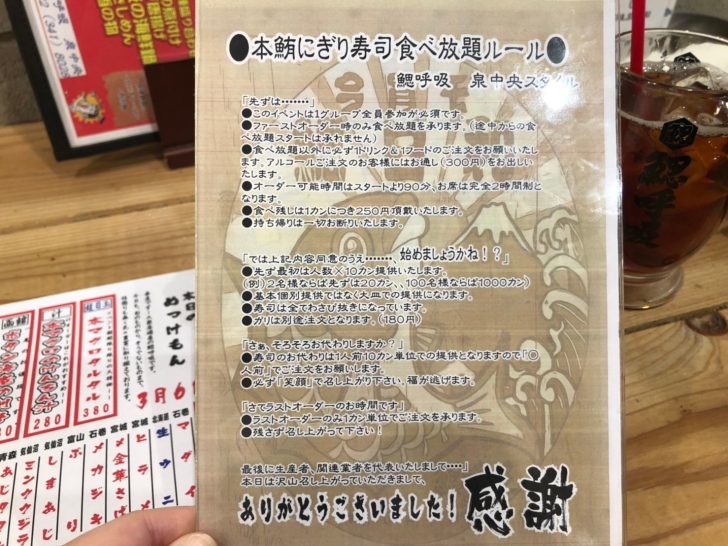 ●本鮪にぎり寿司食べ放題ルール●
鰓呼吸 泉中央スタイル
「先ずは・・・・・・・」
●このイベントは1グループ全員参加が必須です。
●ファーストオーダー時のみ食べ放題を承ります。(途中からの食
べ放題スタートは承れません)
●食べ放題以外に必ず1ドリンク&1フードのご注文をお願いいたし
ます。アルコールご注文のお客様にはお通し(300円)をお出しい
たします。
●オーダー可能時間はスタートより90分、お席は完全2時間制と
なります。
●食べ残しは1カンにつき250円頂戴いたします。
●持ち帰りは一切お断りいたします。
「では上記内容同意のうえ・・・・・・・、始めましょうかね!?」
●先ず最初は人数×10カン提供いたします。
(例)2名様ならば先ずは20カン、、100名様ならば1000カン)
●基本個別提供ではなく大皿での提供になります。
●寿司は全てわさび抜きになっています。
●ガリは別途注文となります。(180円)
「さぁ、そろそろお代わりしますか?」
●寿司のお代わりは1人前10カン単位での提供となりますので「◎
人前」でご注文をお願いします。
●必ず「笑顔」で召し上がり下さい、福が逃げます。
「さてラストオーダーのお時間です」
●ラストオーダーのみ1カン単位でご注文を承ります。
●残さず召し上がって下さい!
最後に生産者、関連業者を代表いたしまして・・・・」
本日は沢山召し上がっていただきまして、
ありがとうございました!
感謝
鰓呼吸
本日の
めっけもん
3月6
本マグロアルタル
380
280
青森 気仙沼 富山 石巻 宮城 宮城 北海道 石巻
生ウニ
ヒラメ
金華さば
メカジキ